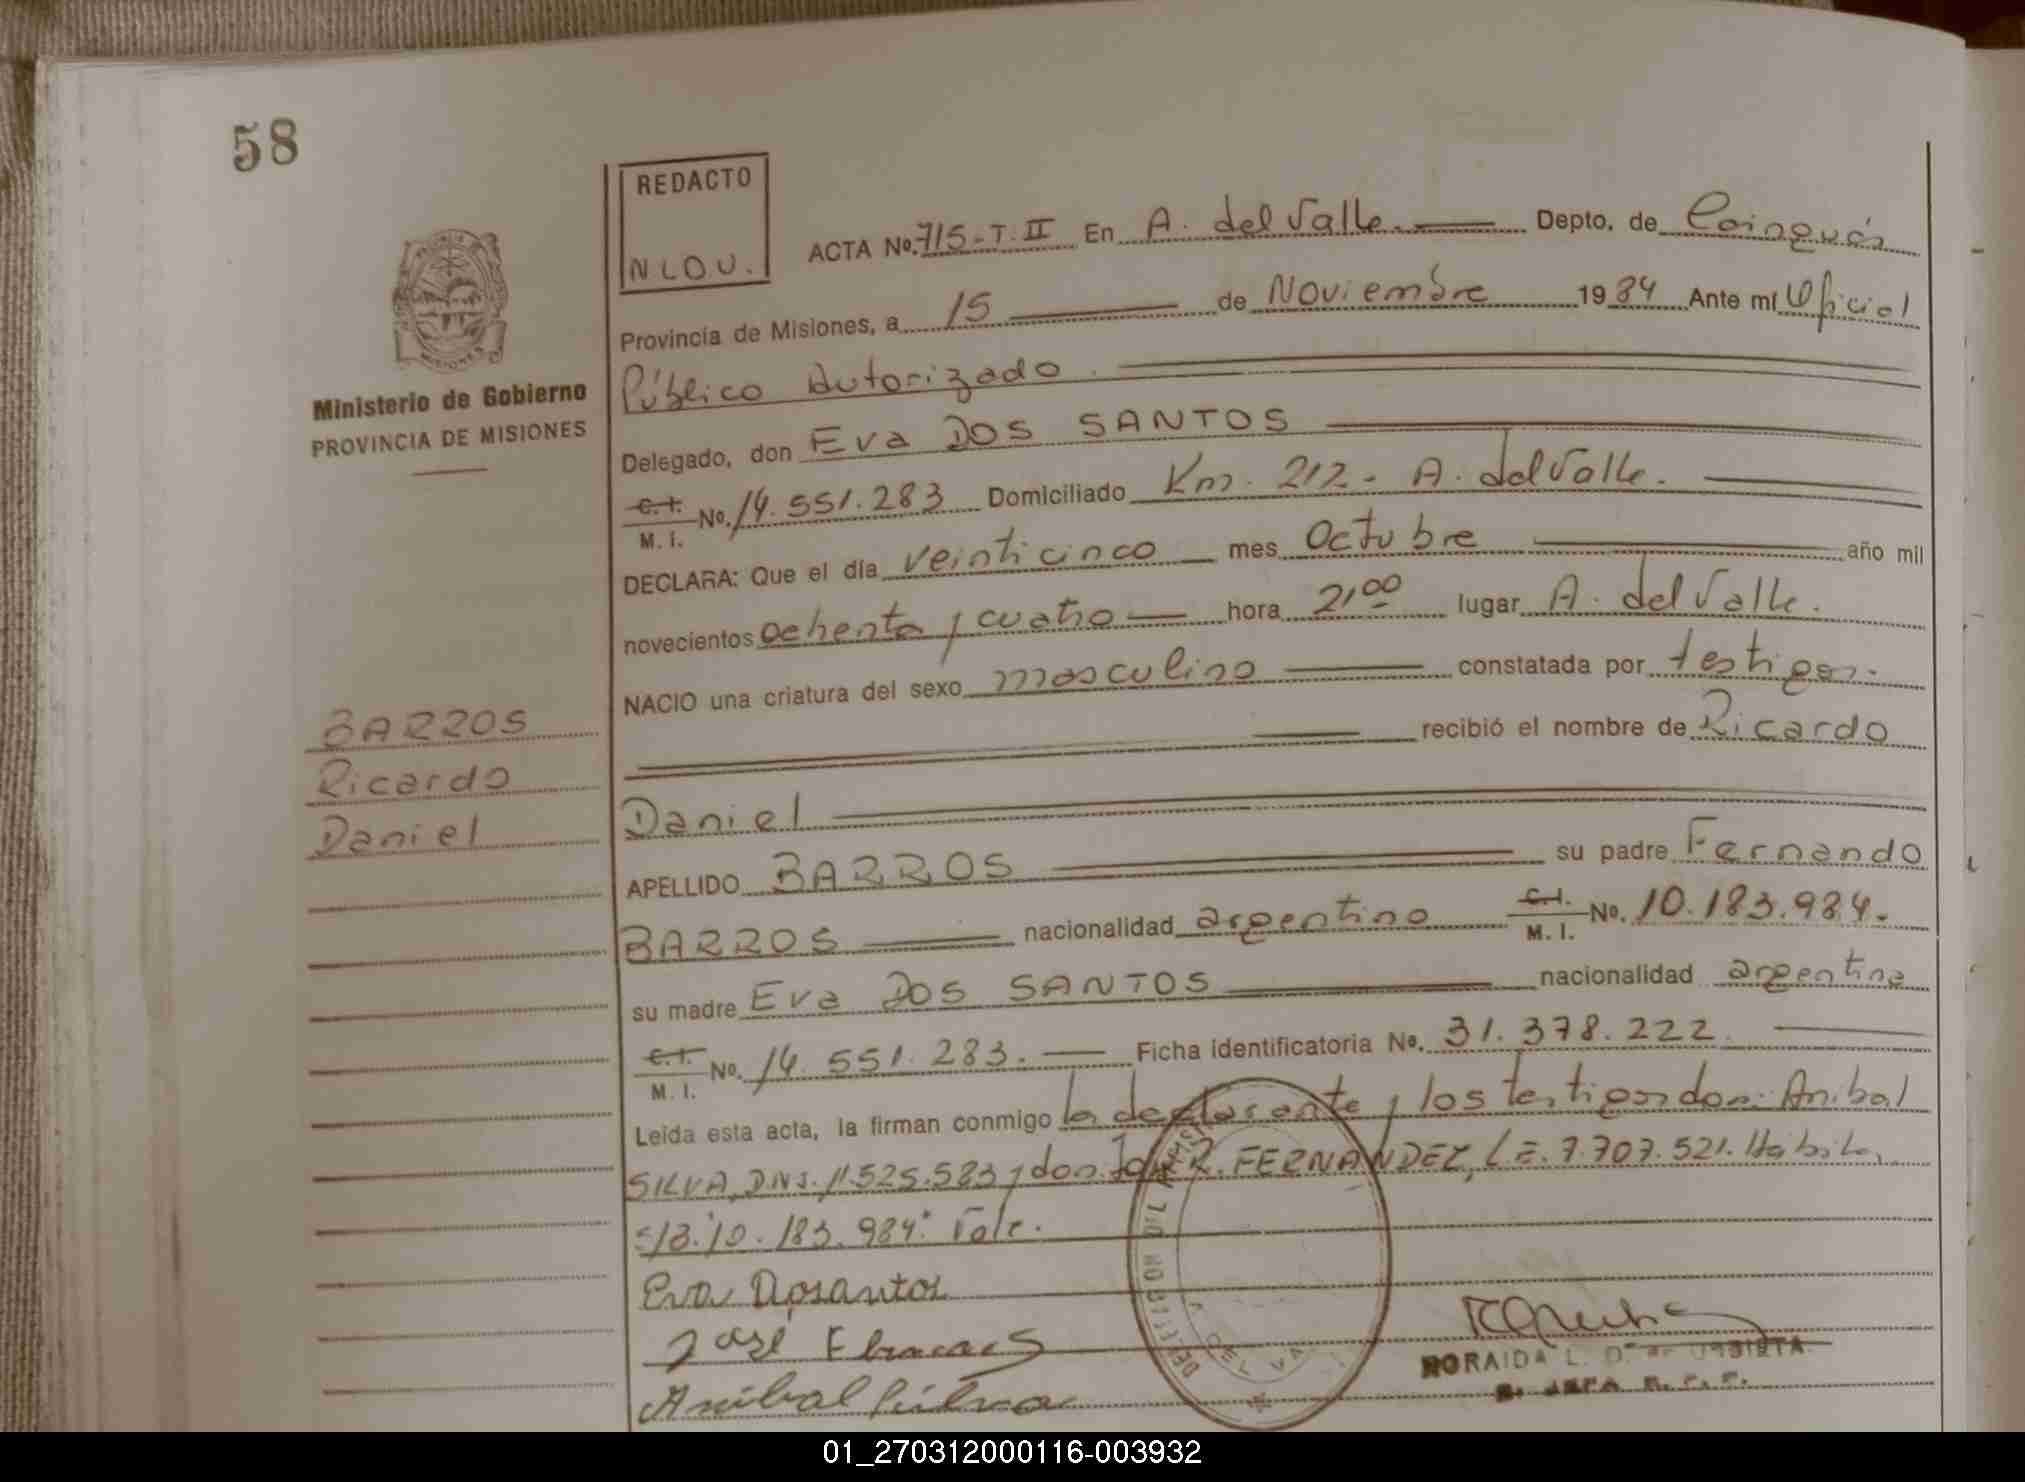 58
REDACTO
NLDU.
ACTA No. 715-T.II En A. del Valle. Depto. de Cainguás
Provincia de Misiones, a 15 de Noviembre 1984 Ante mí Oficial
Público Autorizado.
Ministerio de Gobierno
PROVINCIA DE MISIONES
Delegado, don Eva DOS SANTOS
C.I. M.I. No. 14.551.283 Domiciliado Km. 212- A. del Valle.
DECLARA: Que el día veinticinco mes Octubre año mil
novecientos ochenta y cuatro hora 21,00 lugar A. del Valle.
NACIO una criatura del sexo masculino constatada por testigos.
recibió el nombre de Ricardo
Daniel
BARROS
Ricardo
Daniel
APELLIDO BARROS su padre Fernando
BARROS nacionalidad argentino C.I. M.I. No. 10.183.984.
su madre Eva DOS SANTOS nacionalidad argentina
C.I. M.I. No. 14.551.283. Ficha identificatoria No. 31.378.222.
Leída esta acta, la firman conmigo la declarante y los testigos don: Anibal
SILVA, DNI. 11.525.583 y don R. FERNANDEZ, LE. 7.707.521.
S/B."10.183.984" Vale.
Eva Dosantos
José
Anibal Silva
A DEL VA
NORAIDA L. D.
01_270312000116-003932